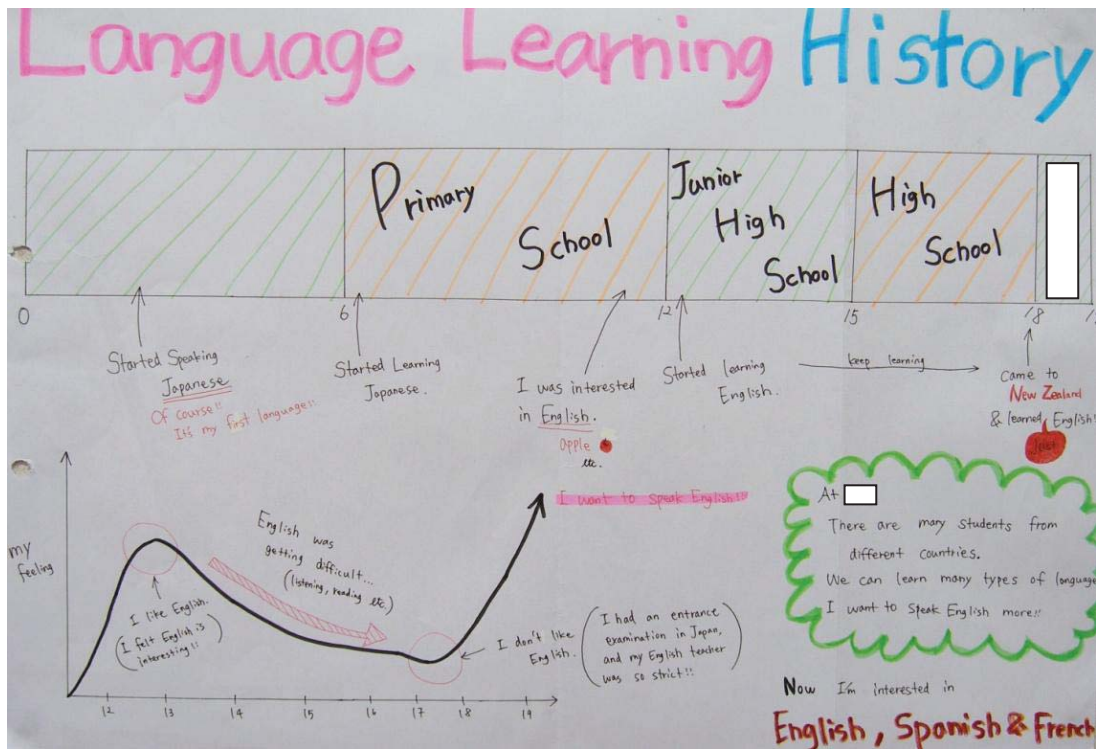 Language Learning History
Primary
School
Junior
High
School
High
School
0
6
12
15
18
Started Speaking
Japanese
Of course!!
It's my first language!!
Started Learning
Japanese.
I was interested
in English.
apple
etc.
Started learning
English.
keep learning
Came to
New Zealand
& learned English!
my
feeling
I like English.
(I felt English is
interesting!!)
English was
getting difficult...
(listening, reading etc.)
I don't like
English.
(I had an entrance
examination in Japan,
and my English teacher
was so strict!!)
I want to speak English!!
12 13 14 15 16 17 18 19
At
There are many students from
different countries.
We can learn many types of language
I want to speak English more!!
Now I'm interested in
English, Spanish & French